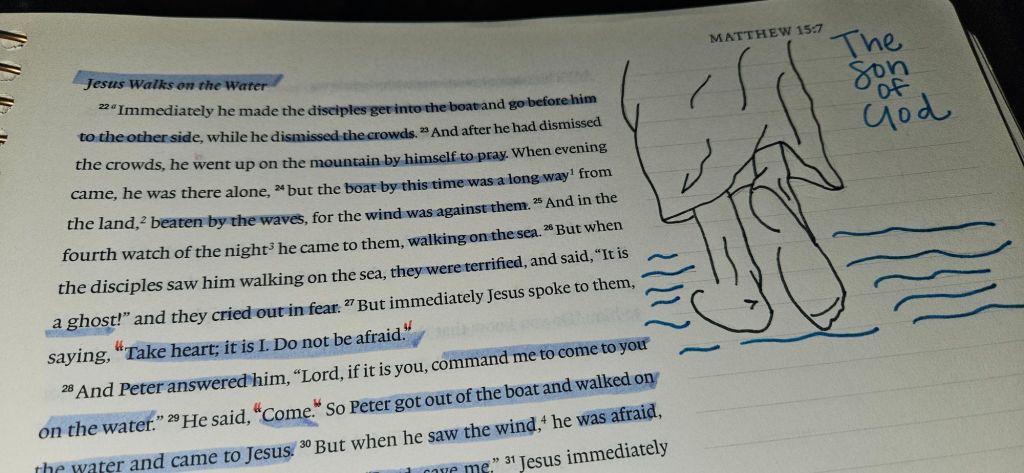 MATTHEW 15:7
Jesus Walks on the Water
22 a Immediately he made the disciples get into the boat and go before him
to the other side, while he dismissed the crowds. 23 And after he had dismissed
the crowds, he went up on the mountain by himself to pray. When evening
came, he was there alone, 24 but the boat by this time was a long way1 from
the land,2 beaten by the waves, for the wind was against them. 25 And in the
fourth watch of the night3 he came to them, walking on the sea. 26 But when
the disciples saw him walking on the sea, they were terrified, and said, “It is
a ghost!” and they cried out in fear. 27 But immediately Jesus spoke to them,
saying, “Take heart; it is I. Do not be afraid.”
28 And Peter answered him, “Lord, if it is you, command me to come to you
on the water.” 29 He said, “Come.” So Peter got out of the boat and walked on
the water and came to Jesus. 30 But when he saw the wind,4 he was afraid,
save me.” 31 Jesus immediately
The
son
of
God